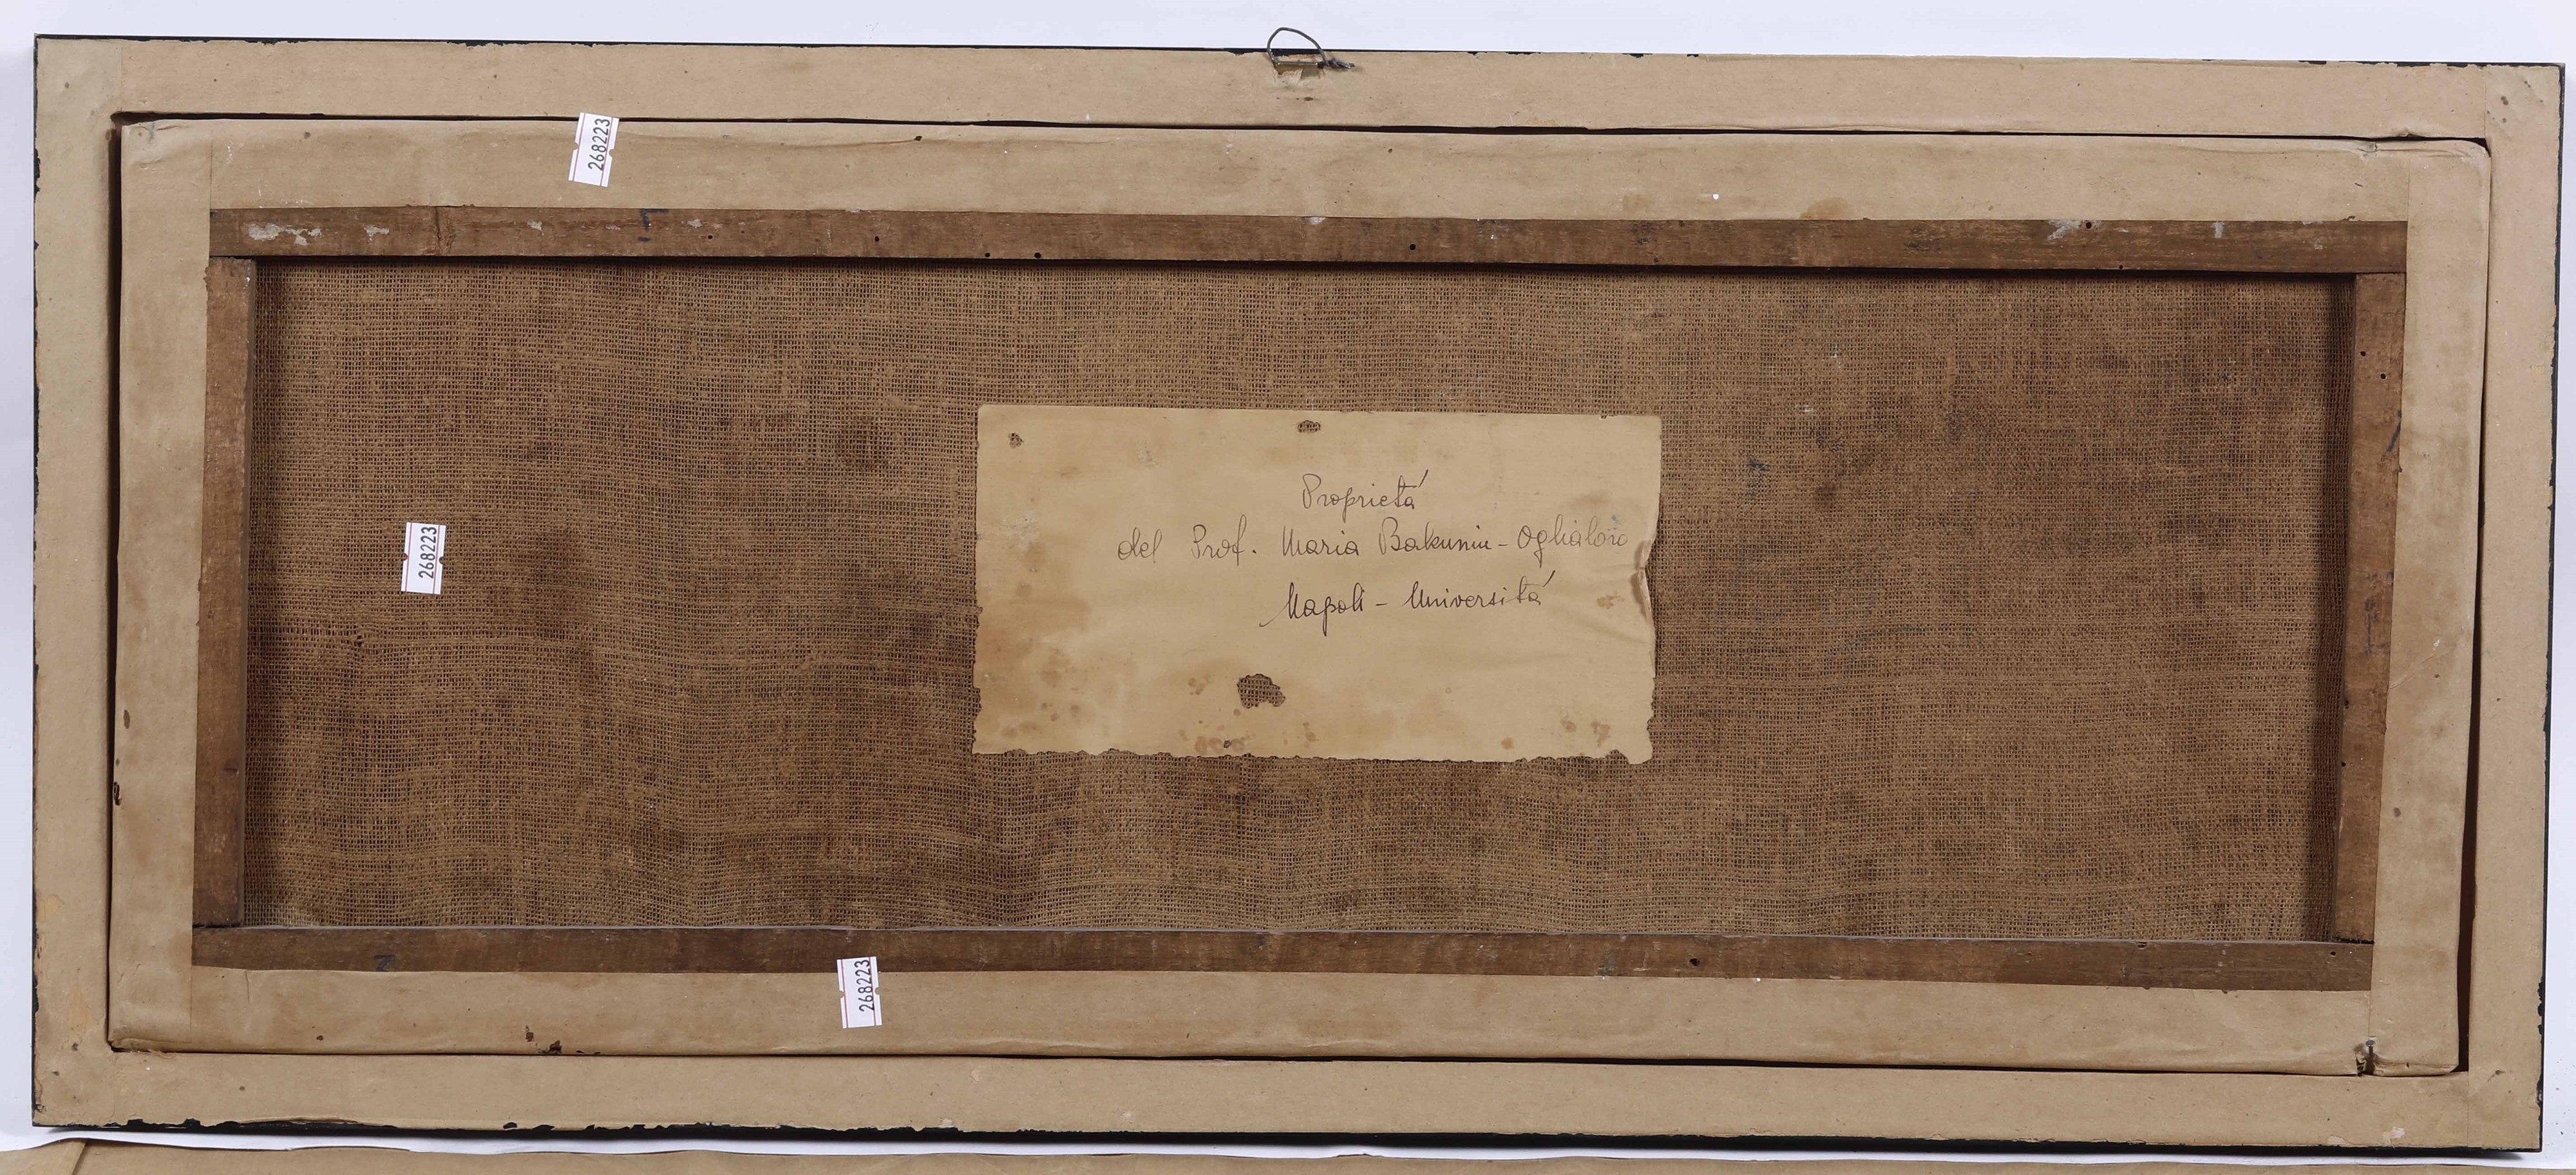 268223
Proprietá
del Prof. Maria Bakunin - Oglialoro
Napoli - Universitá
268223
268223